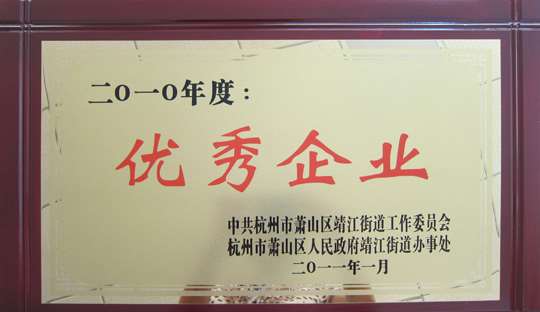 二〇一〇年度：
优秀企业
中共杭州市萧山区靖江街道工作委员会
杭州市萧山区人民政府靖江街道办事处
二〇一一年一月